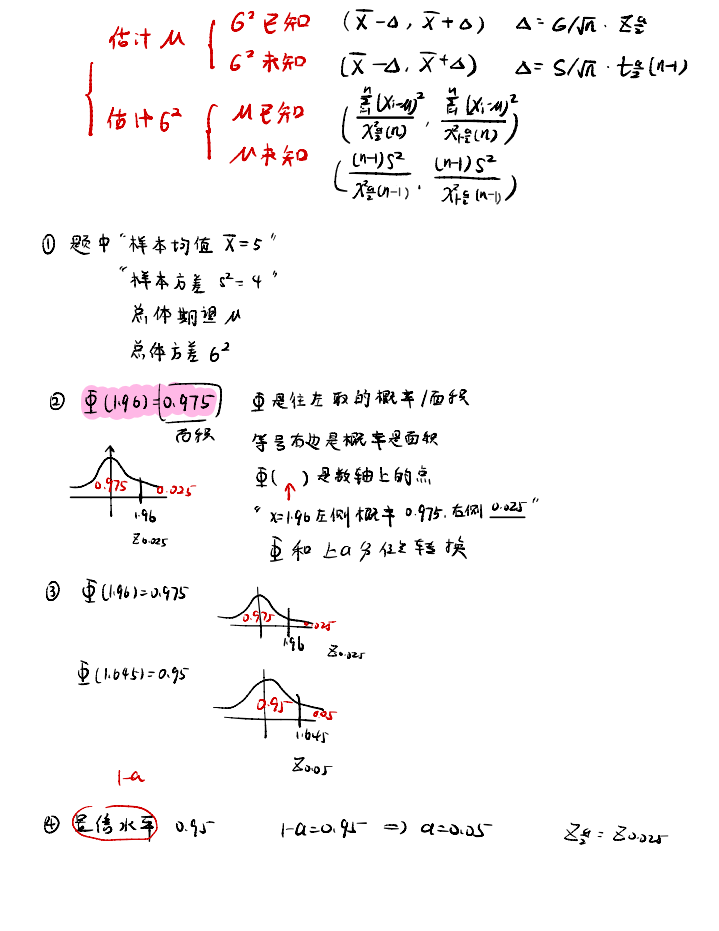 估计 μ
σ² 已知 (X̄-Δ, X̄+Δ) Δ=σ/√n · Z_{α/2}
σ² 未知 (X̄-Δ, X̄+Δ) Δ=S/√n · t_{α/2}(n-1)
估计σ²
μ已知 (Σ_{i=1}^{n}(Xi-μ)²/χ²_{α/2}(n), Σ_{i=1}^{n}(Xi-μ)²/χ²_{1-α/2}(n))
μ未知 ((n-1)S²/χ²_{α/2}(n-1), (n-1)S²/χ²_{1-α/2}(n-1))
① 题中“样本均值 X̄=5”
“样本方差 s²=4”
总体期望 μ
总体方差 σ²
② Φ(1.96)=0.975 Φ是往左取的概率/面积
面积 等号右边是概率是面积
0.975 0.025 Φ( )是数轴上的点
1.96 “x=1.96左侧概率 0.975, 右侧 0.025”
Z0.025 Φ和上α分位之转换
③ Φ(1.96)=0.975
0.975 0.025
1.96 Z0.025
Φ(1.645)=0.95
0.95 0.05
1.645
Z0.05
1-α
④ 置信水平 0.95 1-α=0.95 ⇒ α=0.05 Z_{α/2}=Z0.025